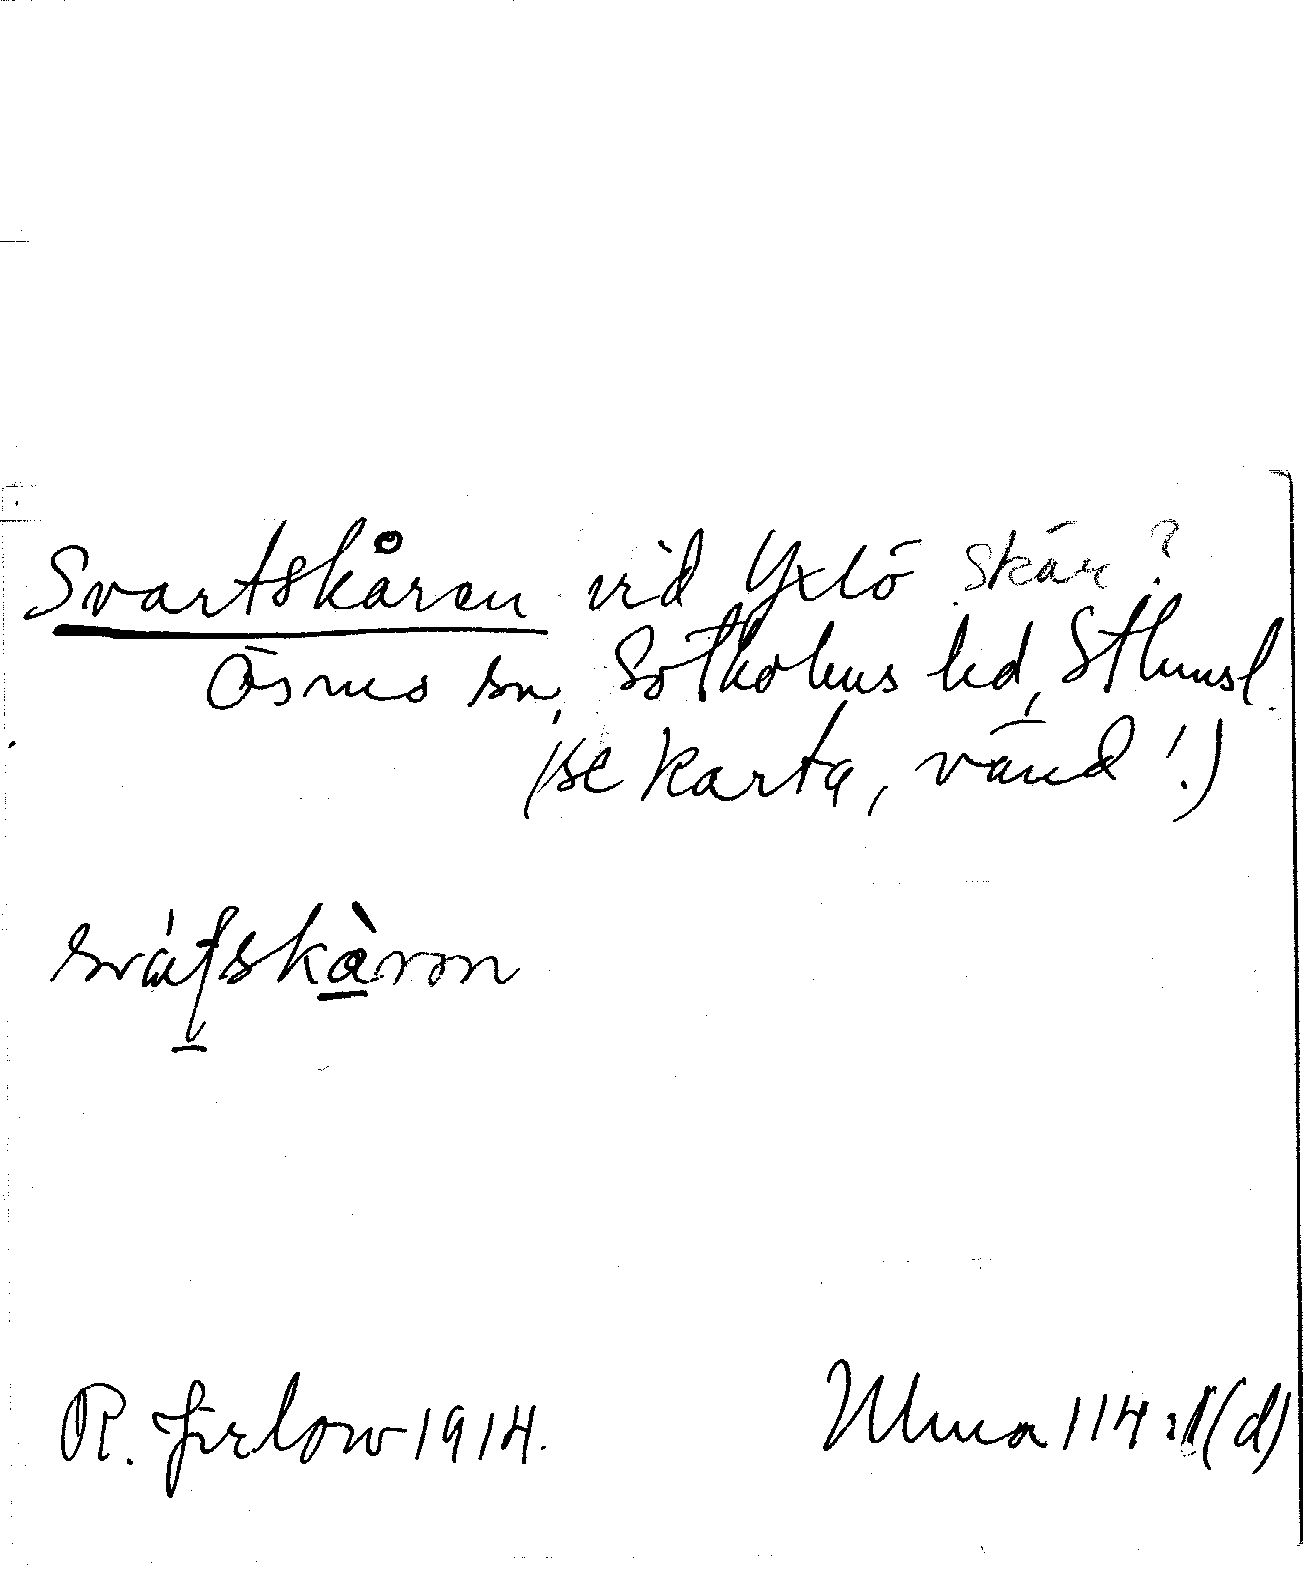 Svartskåren vid Yxlö skär?
Ösmo sn, Sotholms hd, Sthmsl.
(se karta, vänd!)
R. Jirlow 1914.
Ulma 114:1(d)